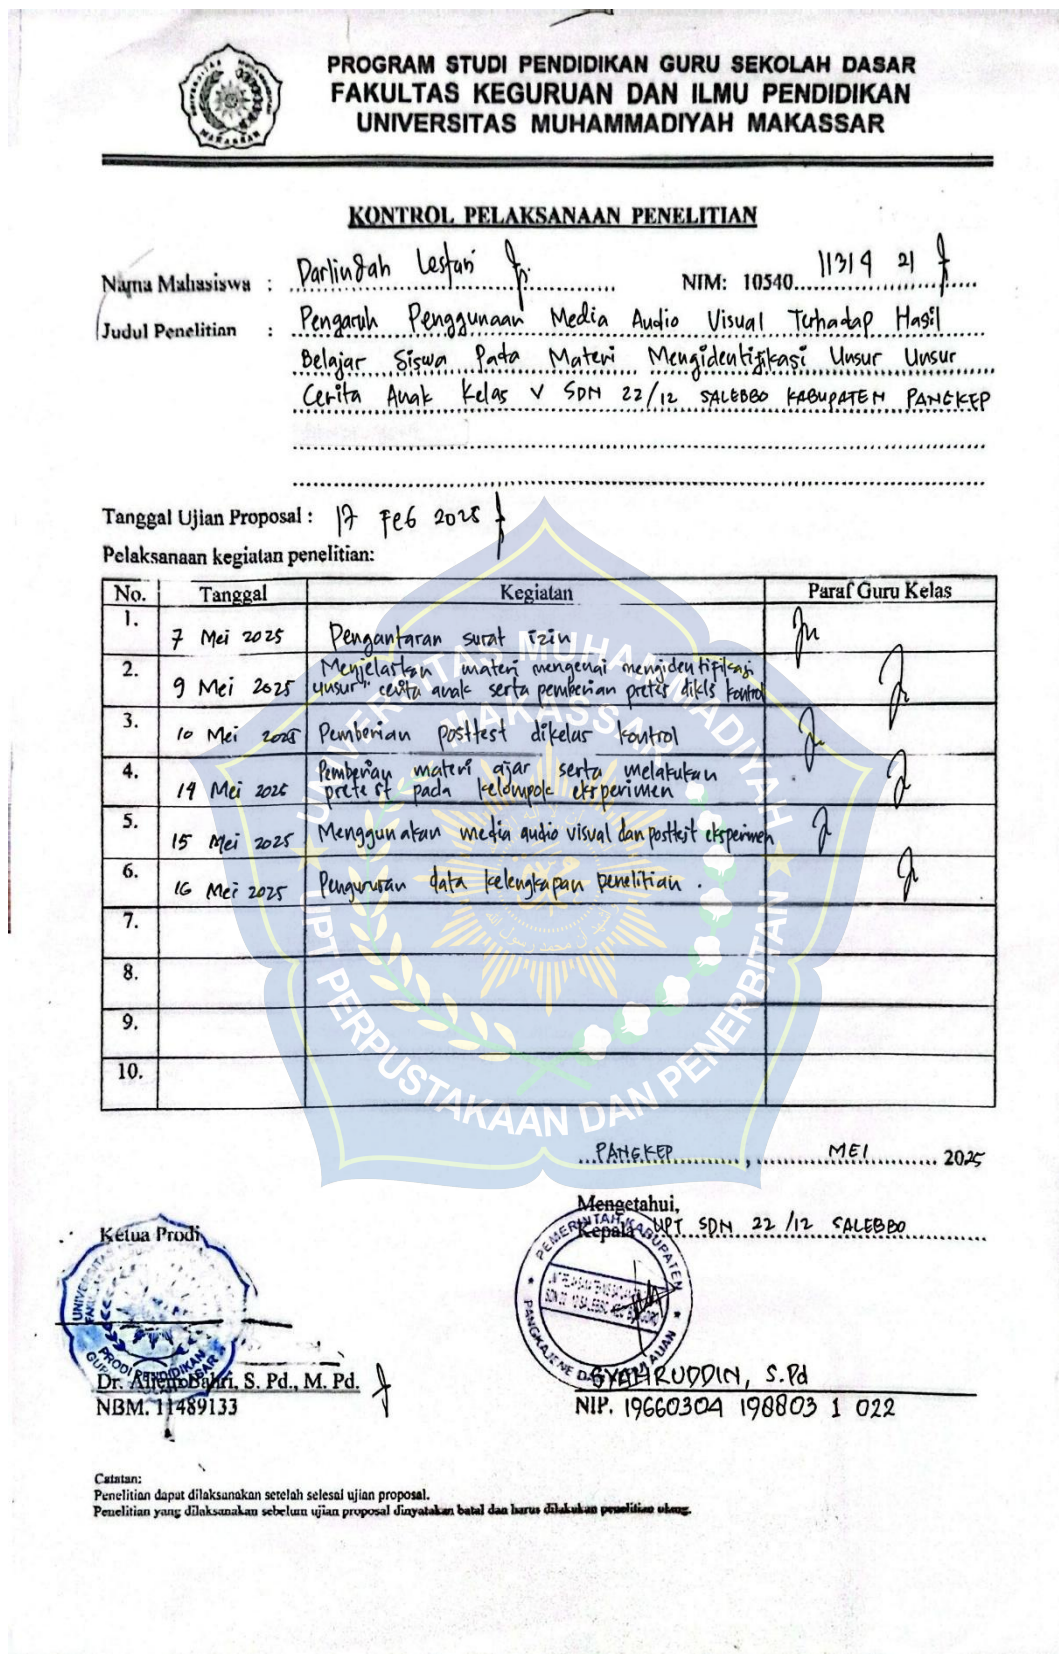 PROGRAM STUDI PENDIDIKAN GURU SEKOLAH DASAR
FAKULTAS KEGURUAN DAN ILMU PENDIDIKAN
UNIVERSITAS MUHAMMADIYAH MAKASSAR
KONTROL PELAKSANAAN PENELITIAN
Nama Mahasiswa : Darlindah Lestari NIM: 10540 11319 21
Judul Penelitian : Pengaruh Penggunaan Media Audio Visual Terhadap Hasil
Belajar Siswa Pada Materi Mengidentifikasi Unsur Unsur
Cerita Anak Kelas V SDN 22/12 SALEBBO KABUPATEN PANGKEP
Tanggal Ujian Proposal : 17 Feb 2025
Pelaksanaan kegiatan penelitian:
No. Tanggal Kegiatan Paraf Guru Kelas
1. 7 Mei 2025 Pengantaran surat izin
2. 9 Mei 2025 Menjelaskan materi mengenai mengidentifikasi
unsur" cerita anak serta pemberian pretes dikls kontrol
3. 10 Mei 2025 Pemberian posttest dikelas kontrol
4. 14 Mei 2025 Pemberian materi ajar serta melakukan
pretest pada kelompok eksperimen
5. 15 Mei 2025 Menggunakan media audio visual dan posttest eksperimen
6. 16 Mei 2025 Pengurusan data kelengkapan penelitian.
7.
8.
9.
10.
UNIVERSITAS MUHAMMADIYAH
MAKASSAR
UPT PERPUSTAKAAN DAN PENERBITAN
PANGKEP, MEI 2025
Mengetahui,
Ketua Prodi
Kepala UPT SDN 22/12 SALEBBO
PEMERINTAH KABUPATEN
Dr. Bahri, S. Pd., M. Pd.
NBM. 11489133
SYAHRUDDIN, S.Pd
NIP. 19660304 198803 1 022
Catatan:
Penelitian dapat dilaksanakan setelah selesai ujian proposal.
Penelitian yang dilaksanakan sebelum ujian proposal dinyatakan batal dan harus dilakukan penelitian ulang.